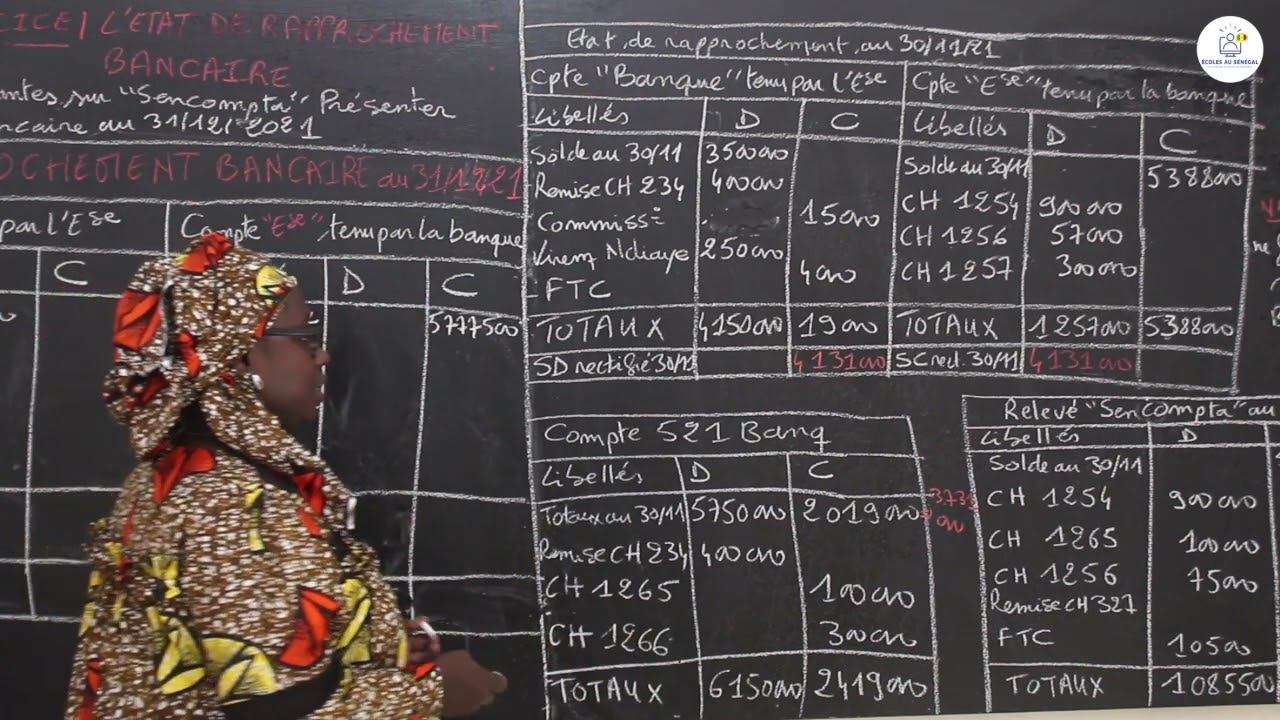 L'ETAT DE RAPPROCHEMENT
BANCAIRE
sur "Sencompta" Présenter
au 31/12/2021
BANCAIRE au 31/12/21
par l'Ese
Compte "Ese" tenu par la banque
C
D
C
5777500
Etat de rapprochement au 30/11/21
Cpte "Banque" tenu par l'Ese
Cpte "Ese" tenu par la banque
Libellés D C
Libellés D C
Solde au 30/11 3500000
Solde au 30/11 5388000
Remise CH 234 400000
CH 1254 900000
Commiss° 15000
CH 1256 57000
Virem Ndiaye 250000
CH 1257 300000
FTC 4000
TOTAUX 4150000 19000
TOTAUX 1257000 5388000
SD rectifié 30/11 4131000
SC rect. 30/11 4131000
Compte 521 Banq
Libellés D C
Totaux au 30/11 5750000 2019000
3731
000
Remise CH 234 400000
CH 1265 100000
CH 1266 300000
TOTAUX 6150000 2419000
Relevé "Sencompta" au
Libellés D
Solde au 30/11
CH 1254 900000
CH 1265 100000
CH 1256 75000
Remise CH 327
FTC 10500
TOTAUX 1085500
ÉCOLES AU SÉNÉGAL